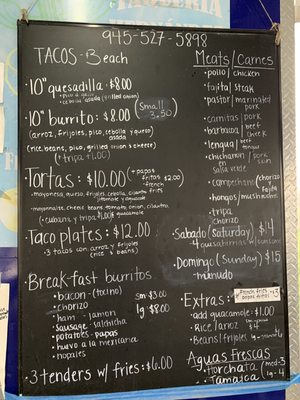 945-527-5898
TACOS-Beach
10" quesadilla $8.00
• pico de gallo
• cebolla asada (grilled onion)
10" burrito = $8.00
(Small 3.50)
(arroz, frijoles, pico, cebolla asada y queso)
(rice, beans, pico, grilled onion & cheese)
(+ tripa $1.00)
Tortas: $10.00 (+ papas fritas $2.00
• french fries)
• mayonesa, queso, frijoles, cebolla, cilantro
tomate y aguacate
• mayonnaise, cheese, beans, tomato, onion, cilantro,
guacamole
(+ cubana y tripa $1.00)
Taco plates: $12.00
• 3 tacos con arroz y frijoles
(rice & beans)
Break-fast burritos
• bacon - (tocino) sm $3.00
• chorizo lg $8.00
• ham - Jamon
• sausage - salchicha
• potatoes - papas
• huevo a la mexicana
• nopales
• 3 tenders w/ fries: $6.00
Meats/Carnes
• pollo/chicken
• fajita/steak
• pastor/marinated pork
• carnitas/pork
• barbacoa/beef cheek
• lengua/beef tongue
• chicharron/pork skin
en salsa verde
• campechana (chorizo fajita)
• hongos/mushrooms
• tripa
chorizo
Sabado (Saturday) $14
Domingo (Sunday) $15
• menudo
Extras: French fries
papas fritas
• add guacamole: $1.00
• Rice/arroz
• Beans/frijoles
Aguas Frescas
• Horchata (med-3
• Jamaica (lg-4